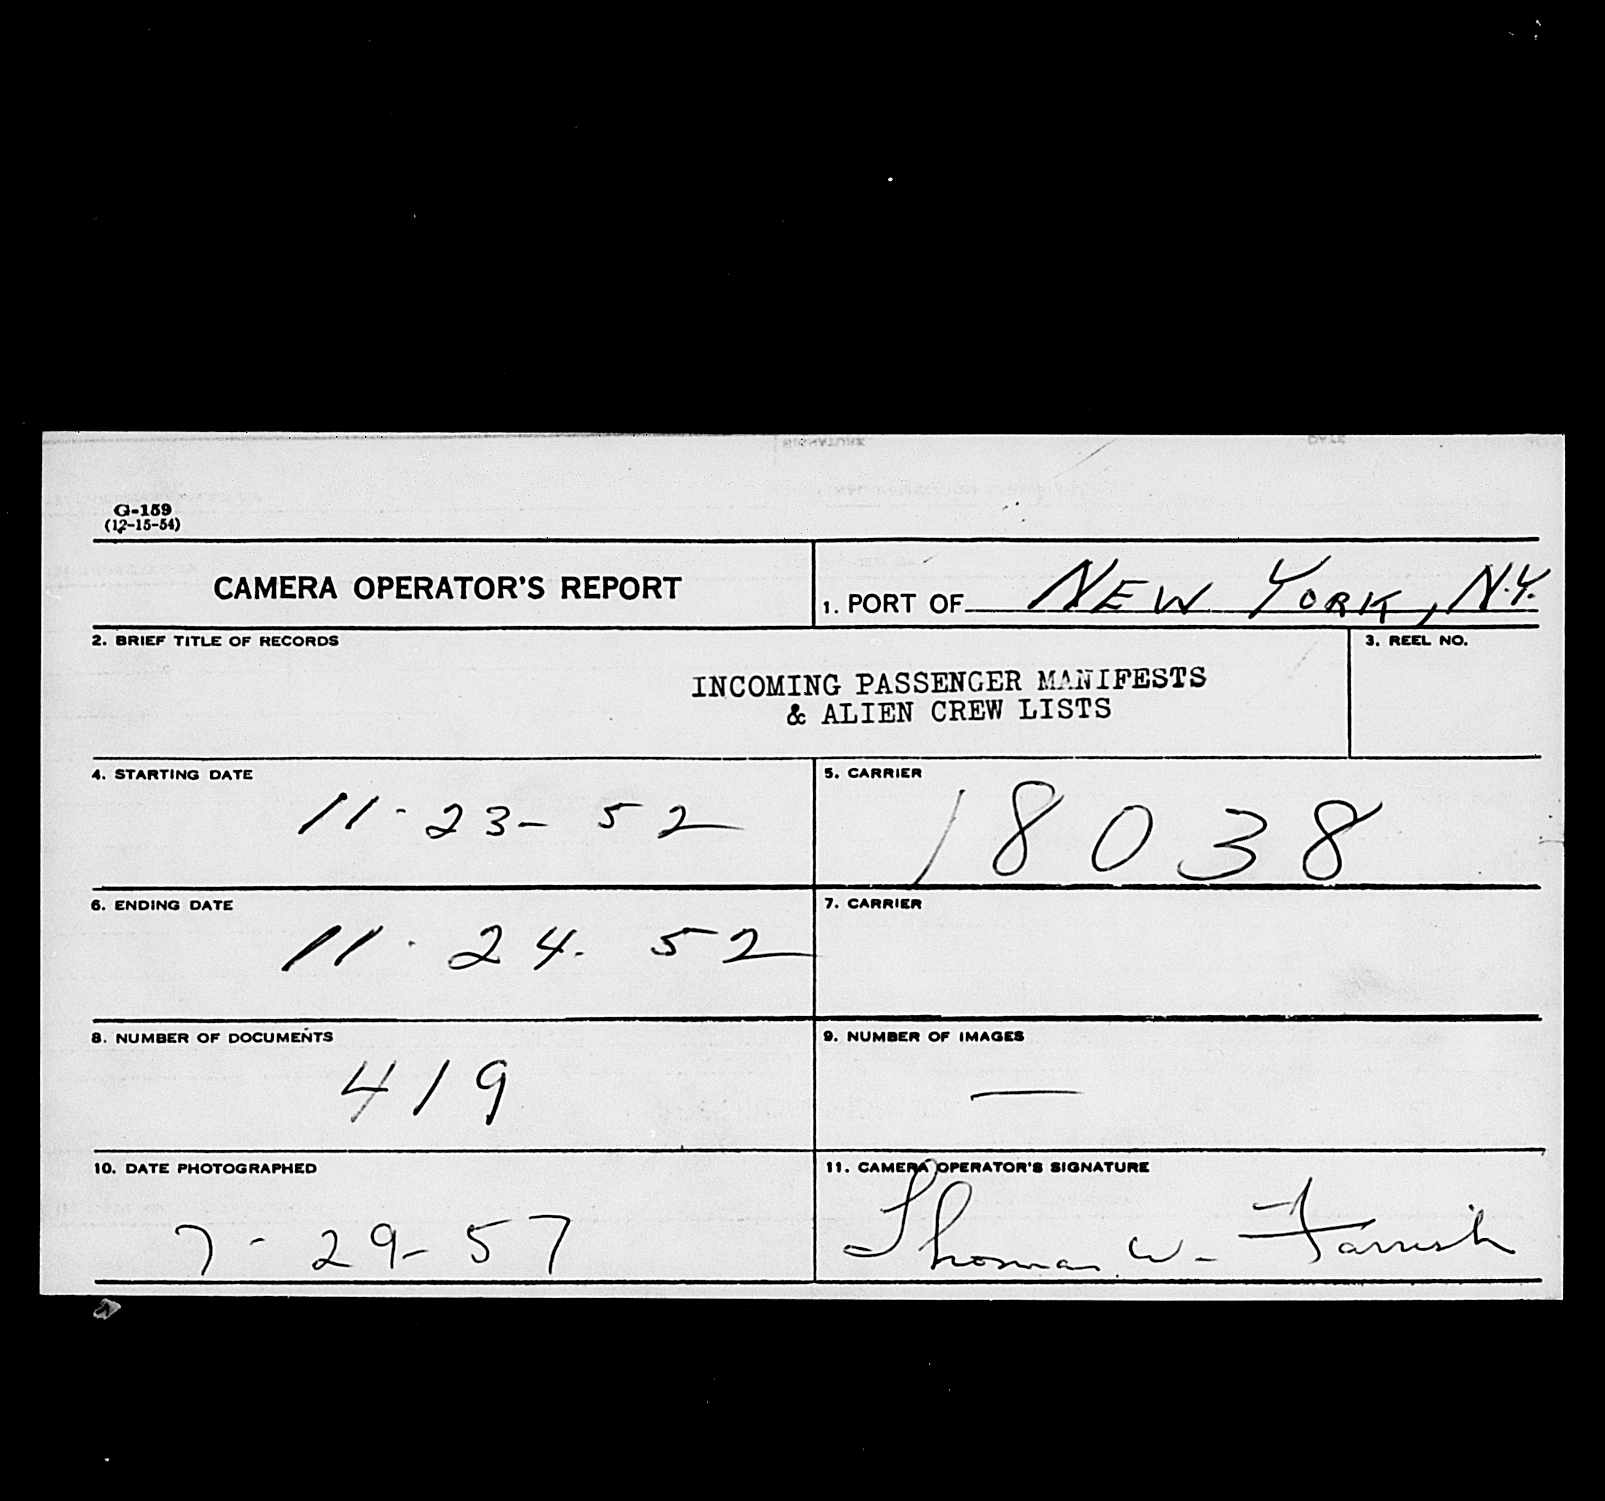 G-159
(12-15-54)
CAMERA OPERATOR'S REPORT
1. PORT OF NEW YORK, N.Y.
2. BRIEF TITLE OF RECORDS
3. REEL NO.
INCOMING PASSENGER MANIFESTS
& ALIEN CREW LISTS
4. STARTING DATE
11-23-52
5. CARRIER
18038
6. ENDING DATE
11-24-52
7. CARRIER
8. NUMBER OF DOCUMENTS
419
9. NUMBER OF IMAGES
—
10. DATE PHOTOGRAPHED
7-29-57
11. CAMERA OPERATOR'S SIGNATURE
Thomas W. Farrish